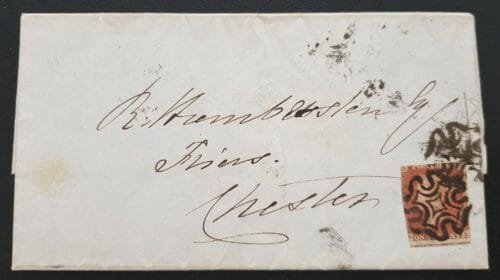 R. Humberston Esq
Friars.
Chester